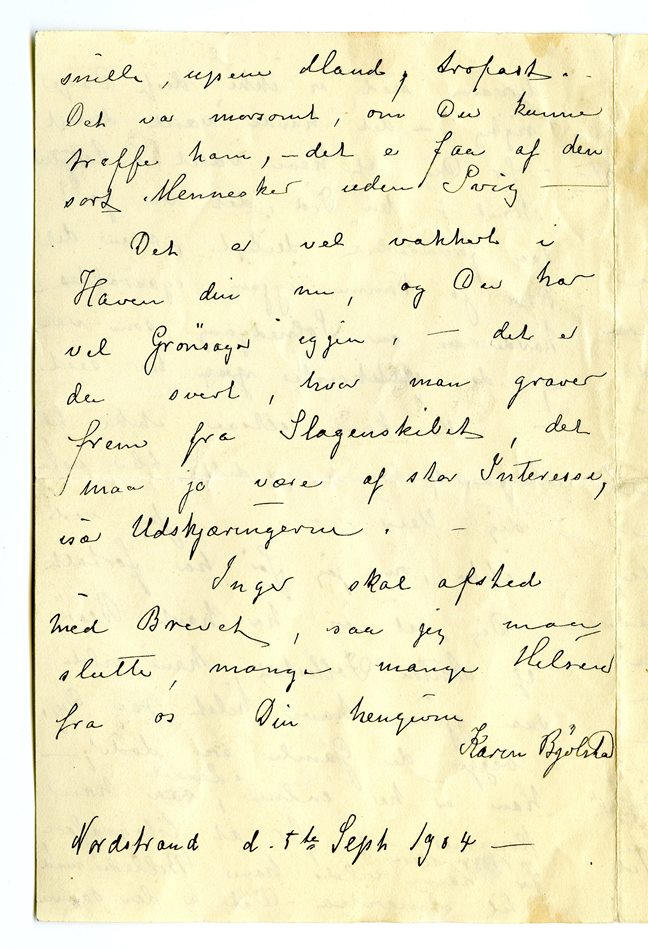 snille, ugene Mand, trofast. -
Det var morsomt, om Du kunne
træffe ham, - det er faa af den
sort Mennesker uden Svig -
Det er vel vakkert i
Haven din nu, og Du har
vel Grönsager igjen, - det er
da svert, hvor man graver
frem fra Slagenskibet, det
maa jo være af stor Interesse,
især Udskjæringerne. -
Inger skal afsted
med Brevet, saa jeg maa
slutte, mange mange Hilsener
fra os Din hengivne
Karen Bjölstad
Nordstrand d. 5te Sept 1904 -